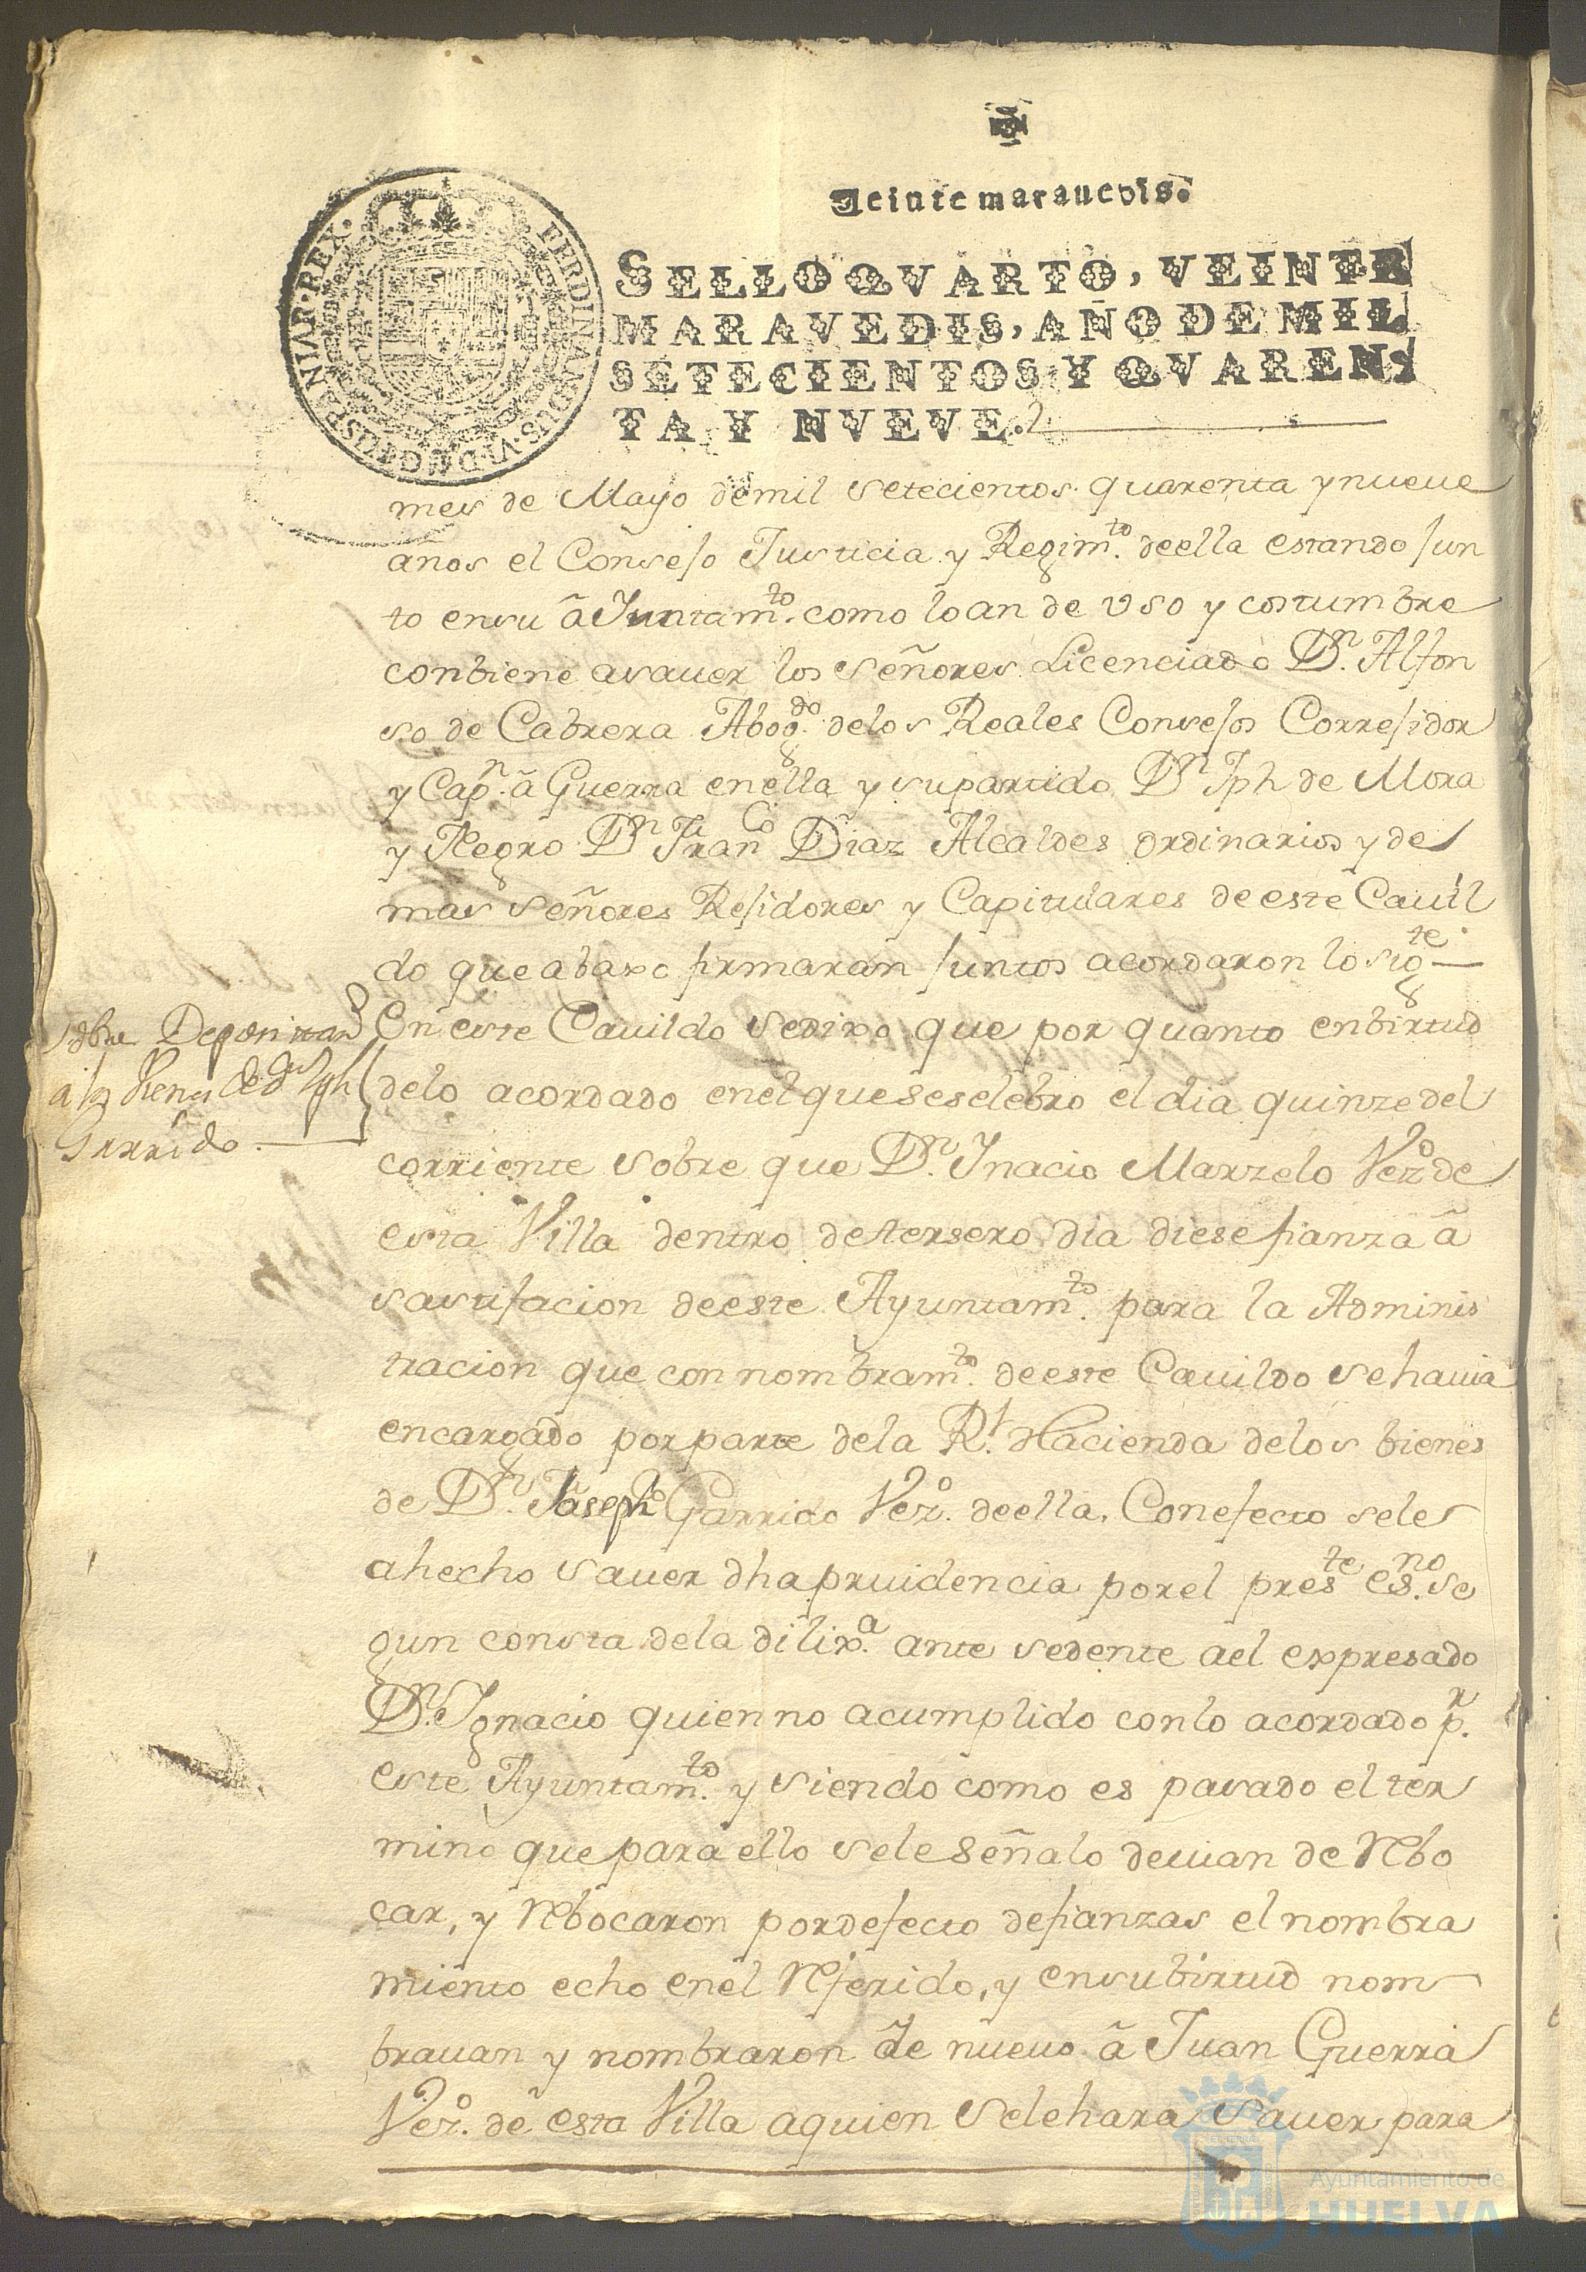 Veinte maravedis.
SELLO QVARTO, VEINTE
MARAVEDIS, AÑO DE MIL
SETECIENTOS Y QVAREN-
TA Y NVEVE.
FERDINANDUS·VI·D·G·HISPANIAR·REX·
mes de Mayo demil setecientos quarenta ynueue
años el Consejo Justicia y Regim.to deella estando jun
to ensu â Juntam.to como loan de vso y costumbre
conbiene asauer los señores Licenciado D.n Alfon
so de Cabrera Abog.do delos Reales Consejos Correjidor
y Cap.n â Guerra enella y supartido D.n Jph de Mora
y Negro D.n Fran.co Diaz Alcaldes ordinarios y de
mas señores Rejidores y Capitulares de este Cauil
do que abaxo firmaran juntos acordaron lo sig.te
sobre Depositario
a los Vienes de d.n Jph
Garrido
En este Cauildo sedixo que por quanto enbirtud
delo acordado enel queseselebro el dia quinze del
corriente sobre que D.n Jnacio Marzelo Vez.o de
esta Villa dentro detersero dia diese fianza â
sastifacion deeste Ayuntam.to para la Adminis
tracion que con nombram.to deeste Cauildo sehauia
encargado porparte dela R.l Hacienda delos bienes
de D.n Joseph Garrido Vez.o deella. Conefecto sele
ahecho sauer dha pruidencia porel pres.te es.no se
gun consta dela dilix.a ante sedente ael expresado
D.n Jgnacio quienno acumplido conlo acordado p.r
este Ayuntam.to y siendo como es pasado el ter
mino quepara ello sele señalo deuian de Rebo
car, y Rebocaron pordefecto defianzas el nombra
miento echo enel Referido, y ensubirtud nom
brauan y nombraron de nueuo â Juan Guerra
Vez.o de esta Villa aquien selehara sauer para
Ayuntamiento de
HUELVA